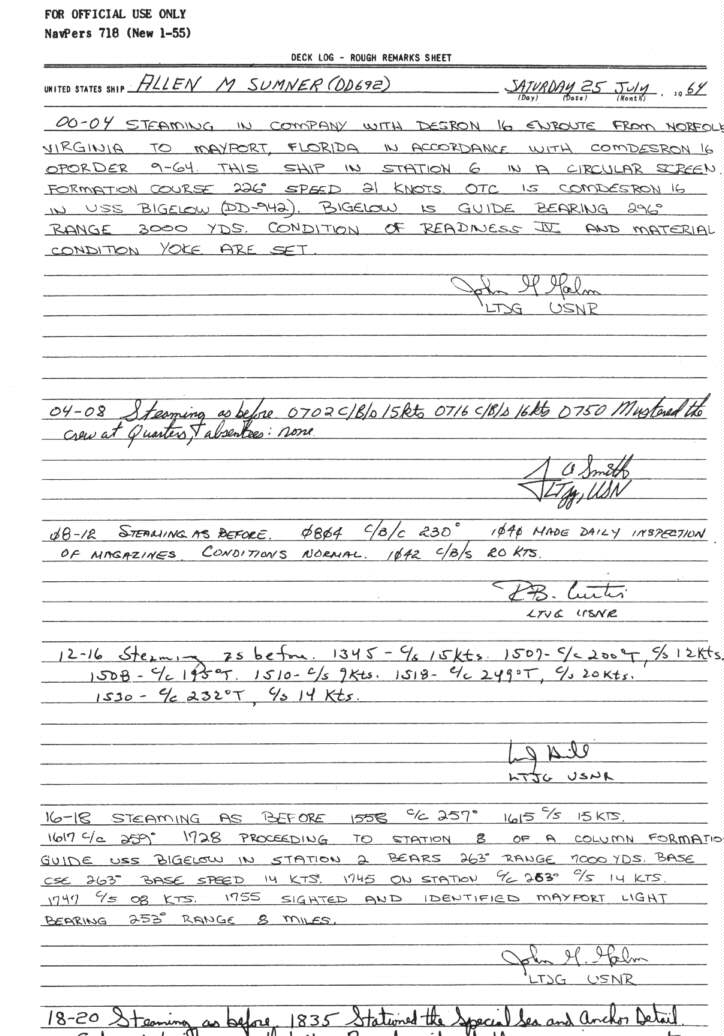 FOR OFFICIAL USE ONLY
NavPers 718 (New 1-55)
DECK LOG - ROUGH REMARKS SHEET
UNITED STATES SHIP ALLEN M SUMNER (DD692) SATURDAY 25 July, 19 64
(Day) (Date) (Month)
00-04 STEAMING IN COMPANY WITH DESRON 16 ENROUTE FROM NORFOLK
VIRGINIA TO MAYPORT, FLORIDA IN ACCORDANCE WITH COMDESRON 16
OPORDER 9-64. THIS SHIP IN STATION 6 IN A CIRCULAR SCREEN.
FORMATION COURSE 226° SPEED 21 KNOTS. OTC IS COMDESRON 16
IN USS BIGELOW (DD-942). BIGELOW IS GUIDE BEARING 296°
RANGE 3000 YDS. CONDITION OF READINESS IV AND MATERIAL
CONDITION YOKE ARE SET.
John M Malm
LTJG USNR
04-08 Steaming as before 0702 C/B/s 15kts 0716 C/B/s 16kts 0750 Mustered the
crew at Quarters, absentees: none.
J A Smith
LTJG, USN
Ø8-12 STEAMING AS BEFORE. Ø8Ø4 C/B/C 230° 1Ø4Ø MADE DAILY INSPECTION
OF MAGAZINES. CONDITIONS NORMAL. 1Ø42 C/B/S 20 KTS.
R.B. Curtis
LTJG USNR
12-16 Steaming as before. 1345 - C/s 15kts. 1507- C/c 200°T, C/s 12kts.
1508 - C/c 195°T. 1510- C/s 9kts. 1518- C/c 249°T, C/s 20kts.
1530 - C/c 232°T, C/s 14 kts.
Hill
LTJG USNR
16-18 STEAMING AS BEFORE 1558 C/C 257° 1615 C/S 15 KTS.
1617 C/C 259° 1728 PROCEEDING TO STATION 8 OF A COLUMN FORMATIO
GUIDE USS BIGELOW IN STATION 2 BEARS 263° RANGE 7000 YDS. BASE
CSE 263° BASE SPEED 14 KTS. 1745 ON STATION C/C 263° C/S 14 KTS.
1747 C/S 08 KTS. 1755 SIGHTED AND IDENTIFIED MAYPORT LIGHT
BEARING 253° RANGE 8 MILES.
John M. Malm
LTJG USNR
18-20 Steaming as before. 1835 Stationed the Special Sea and Anchor Detail.